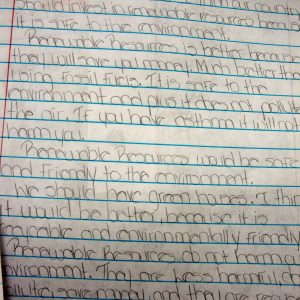 should invest in renewable resources because
it is safe to the environment.
Renewable Resources is better because
they will save you money. Much better than
using Fossil Fuels. It is safe to the
environment and plus it does not pollute
the air. If you have asthma it will not
harm you.
Renewable Resources would be safe
and friendly to the environment.
We should have green buses. I think
it would be better because it is
and environmentally friendly
Renewable Resources do not harm our
environment. They are less harmful, don't
pollute, save money and they are